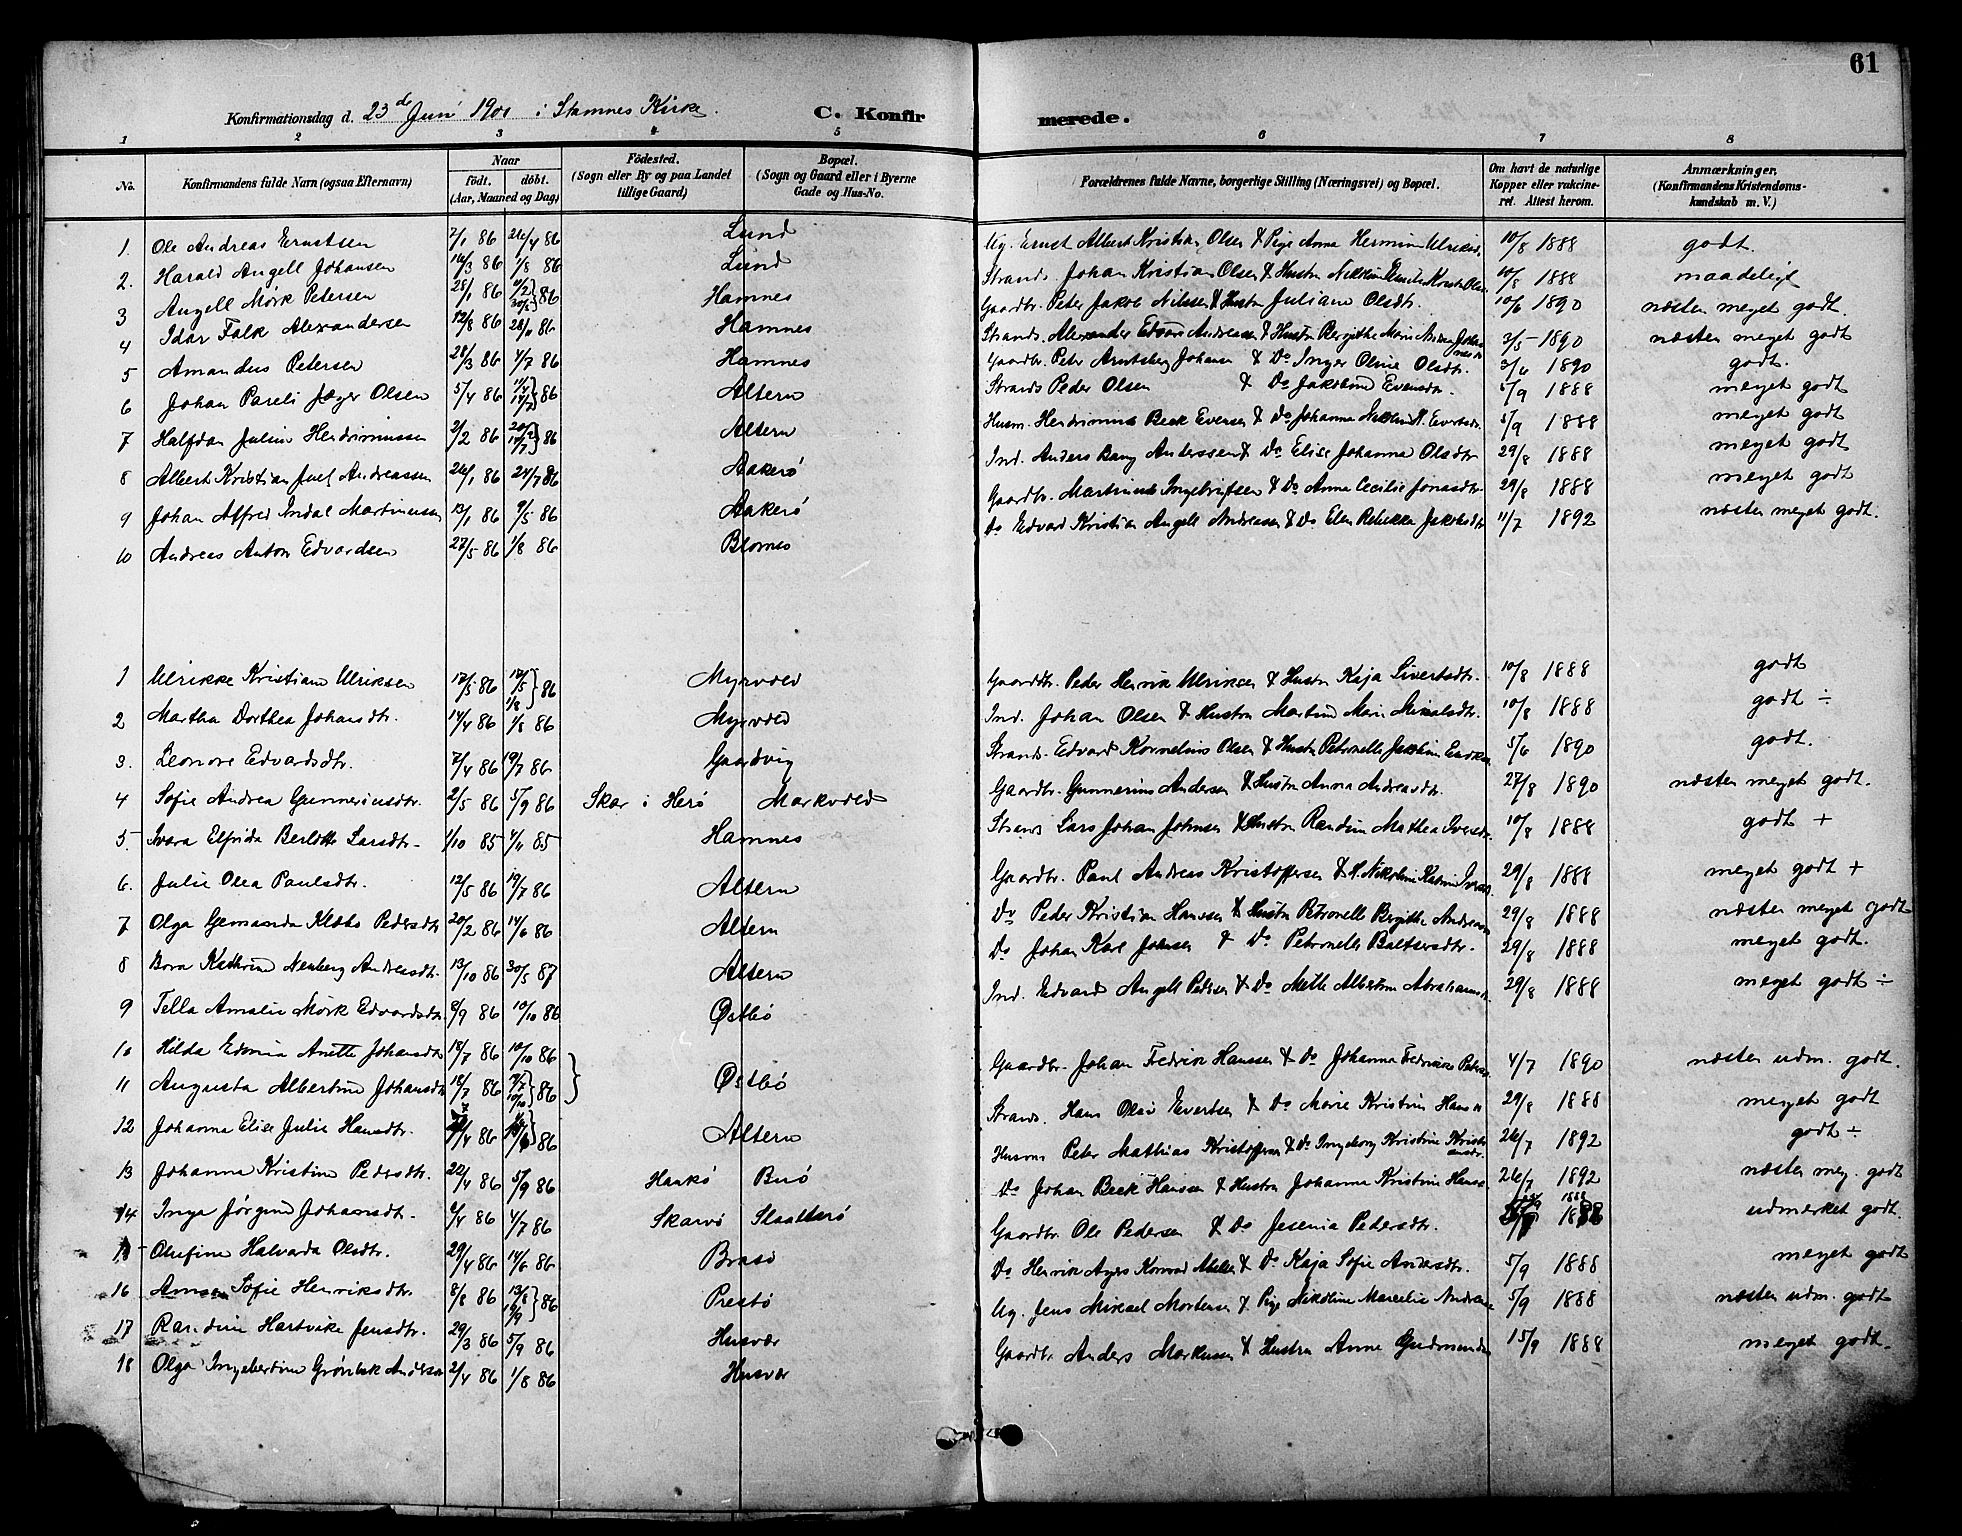 61
Konfirmationsdag d. 23de Juni 1901 i Stamnes Kirke. C. Konfirmerede.
1 2 3 4 5 6 7 8
No. Konfirmandens fulde Navn (ogsaa Efternavn) Naar födt. döbt. (Aar, Maaned og Dag) Födested. (Sogn eller By og paa Landet tillige Gaard) Bopæl. (Sogn og Gaard eller i Byerne Gade og Hus-No. Forældrenes fulde Navne, borgerlige Stilling (Næringsvei) og Bopæl. Om havt de naturlige Kopper eller vakcineret. Attest herom. Anmærkninger. (Konfirmandens Kristendomskundskab m. V.)
1. Ole Andreas Ernstsen 2/1 86 26/4 86 Lund Ug. Ernst Albert Kristian Olsen & Pige Anna Hermine Ulriksd. 10/8 1888 godt.
2. Harald Angell Johansen 16/3 86 1/8 86 Lund Strands. Johan Kristian Olsen & Hustru 10/8 1888 maadeligt
3 Angell Mörk Petersen 28/1 86 86 Hamnes Gaardbr. Peter Jakob Nilssen & Hustru Juliane Olsdtr. 10/6 1890 næsten meget godt.
4 Idar Falk Alexandersen 12/8 86 28/11 86 Hamnes Strands. Alexander Edvard Andreassen & Hustru Bergithe Marie 2/5 1890 næsten meget godt
5 Amandus Petersen 28/3 86 4/7 86 Hamnes Gaardbr. Peter Arntsberg Johansen & Do Inger Oline Olsdtr. 3/6 1890 godt.
6 Johan Pareli Jæger Olsen 5/4 86 11/4 14/7 } 86 Altern Strands Peder Olsen & Do Jakobine Evensdtr. 5/9 1888 meget godt
7 Halfdan Julius Hendrinussen 2/2 86 86 Altern Husm. Hendrinus Beck Eversen & Do Johanna 5/9 1888 meget godt
8 Albert Kristian Juel Andreassen 26/1 86 24/7 86 Aakerö Ind. Anders Bang Anderssen & Do Elise Johanna Olsdtr 29/8 1888 meget godt
9 Johan Alfred Indal Martinussen 13/1 86 9/5 86 Aakerö Gaardbr. Martinus Ingebrigtsen & Do Anna Cecilie Jonasdtr 29/8 1888 meget godt
10 Andreas Anton Edvardsen 27/5 86 1/8 86 Blomes Do Edvard Kristian Angell Andreassen & Do Elen Rebekka Jakobsdtr 11/7 1892 næsten meget godt.
1 Ulrikke Kristiane Ulriksen 17/5 86 17/5 1/8 } 86 Myrvold Gaardbr. Peder Henrik Ulriksen & Hustru Kaja Sivertsdtr. 10/8 1888 godt
2 Martha Dorthea Johansdtr. 14/4 86 1/8 86 Myrvold Ind. Johan Olsen & Hustru Martine Marie Mikalsdtr. 10/8 1888 godt ÷
3. Leonore Edvardsdtr. 7/4 86 19/7 86 Gaardvig Strands. Edvard Kornelius Olsen & Hustru Petronelle Jakobine 5/6 1890 godt.
4 Sofie Andrea Gunnerinusdtr. 2/5 86 5/9 86 Skar i Herö Markvold Gaardbr. Gunnerius Andersen & Hustru Anna Andreasdtr. 27/8 1890 næsten meget godt.
5. Ivara Elfrida Berlotte Larsdtr. 1/10 85 4/11 85 Hamnes Strands Lars Johan Johnsen & Hustru Randine Mathea Iversdr 10/8 1888 godt +
6. Julie Olea Paulsdtr. 12/5 86 19/7 86 Altern Gaardbr. Paul Andreas Kristoffersen & H. Nikoline Katrine 29/8 1888 meget godt +
7 Olga Gemanda Klæbo Pedersdtr 20/2 86 14/6 86 Altern Do Peder Kristian Hanssen & Hustru Petronelle Bergithe 29/8 1888 næsten meget godt
8 Bora Kathrine Nenberg Andreasdtr. 13/10 86 30/5 87 Altern Do Johan Karl Johnsen & Do Petronelle Baltsersdtr. 29/8 1888 meget godt.
9 Tella Amalie Mörk Edvardsdtr. 8/9 86 10/10 86 Østbö Ind. Edvard Angell Pedersen & Do Mette Albertine Abrahamsdr. 29/8 1888 meget godt ÷
10 Hilda Edvina Anette Johansdtr 18/7 86 10/10 86
11 Augusta Albertine Johansdtr 18/7 86 19/7 10/10 } 86 } Østbö Gaardbr. Johan Fredrik Hanssen & Do Johanna Fredrikke 4/7 1890 næsten udm. godt.
12 Johanna Elise Julie Hansdtr. 86 86 Altern Strands. Hans Olai Evertsen & Do Marie Kristine 29/8 1888 meget godt
13 Johanna Kristine Pedersdtr. 22/4 86 5/9 86 Hankö Burö Husm Peter Mathias Kristoffersen & Do Ingeborg Kristine 26/7 1892 godt ÷
14 Inga Jörgine Johansdtr. 4/4 86 4/7 86 Skarvö Slaatterö Do Johan Beck Hanssen & Hustru Johanna Kristine 26/7 1892 næsten meg. godt
15 Olufine Halvarda Olsdtr. 29/4 86 14/6 86 Brasö Gaardbr. Ole Pedersen & Do Jesenia Pedersdtr. 1888 udmerket godt.
16 Anna Sofie Henriksdtr. 8/8 86 13/8 19/9 } 86 Prestö Do Henrik Konrad & Do Kaja Sofie Andersdtr. 5/9 1888 meget godt
17 Randine Hartvike Jensdtr. 29/3 86 5/9 86 Husvær Ug. Jens Mikael Mortensen & Pige Nikoline Marcelie 5/9 1888 næsten udm. godt
18 Olga Ingebertine Grönbek Andersdr 2/4 86 1/8 86 Husvær Gaardbr Anders Markussen & Hustru Anne Gudmundsdr 15/9 1888 meget godt.